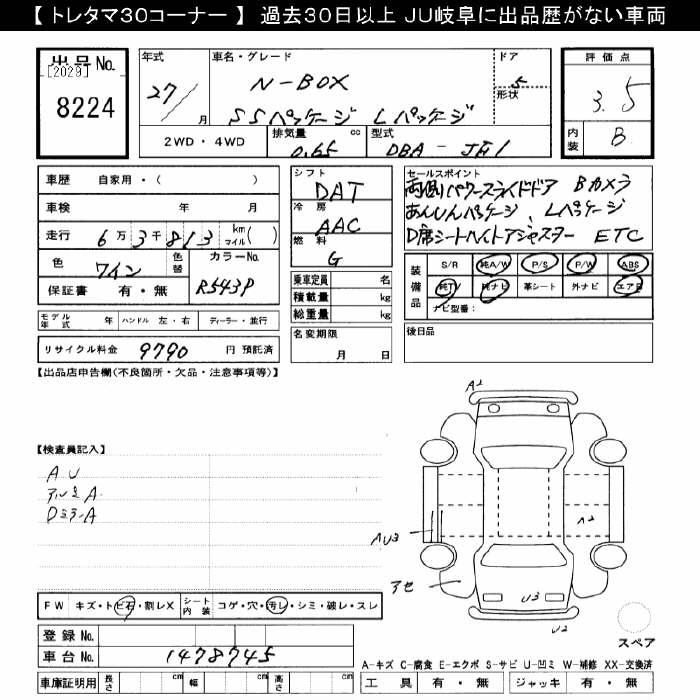 【 トレタマ30コーナー 】 過去30日以上 JU岐阜に出品歴がない車両
出品 No.
[2029]
8224
年式
27/
月
車名・グレード
N-BOX
SSパッケージ Lパッケージ
ドア
5
形状
評価点
3.5
内装
B
2WD・4WD
排気量
cc
0.65
型式
DBA - JF1
車歴 自家用・( )
車検 年 月
走行 6万3千813 km マイル( )
色 ワイン 色替
カラーNo.
R543P
保証書 有・無
シフト
DAT
冷房
AAC
燃料
G
乗車定員 名
積載量 kg
総重量 kg
セールスポイント
両側パワースライドドア Bカメラ
あんしんパッケージ、Lパッケージ
D席シートハイトアジャスター ETC
装備品
S/R 純A/W P/S P/W ABS
純TV 純ナビ 革シート 外ナビ エアB
ナビ型番:
モデル年式 年 ハンドル 左・右 ディーラー・並行
リサイクル料金 9790 円 預託済
名変期限
月 日
後日品
【出品店申告欄(不良箇所・欠品・注意事項等)】
【検査員記入】
AU
アルミA
DミラーA
A2
AU3
A2
アセ
U3
U2
スペア
FW キズ・トビ石・割レX
シート内装 コゲ・穴・汚レ・シミ・破レ・スレ
登録 No.
車台 No. 1478745
車庫証明用 長さ cm 幅 cm 高さ cm
A-キズ C-腐食 E-エクボ S-サビ U-凹ミ W-補修 XX-交換済
工具 有・無 ジャッキ 有・無